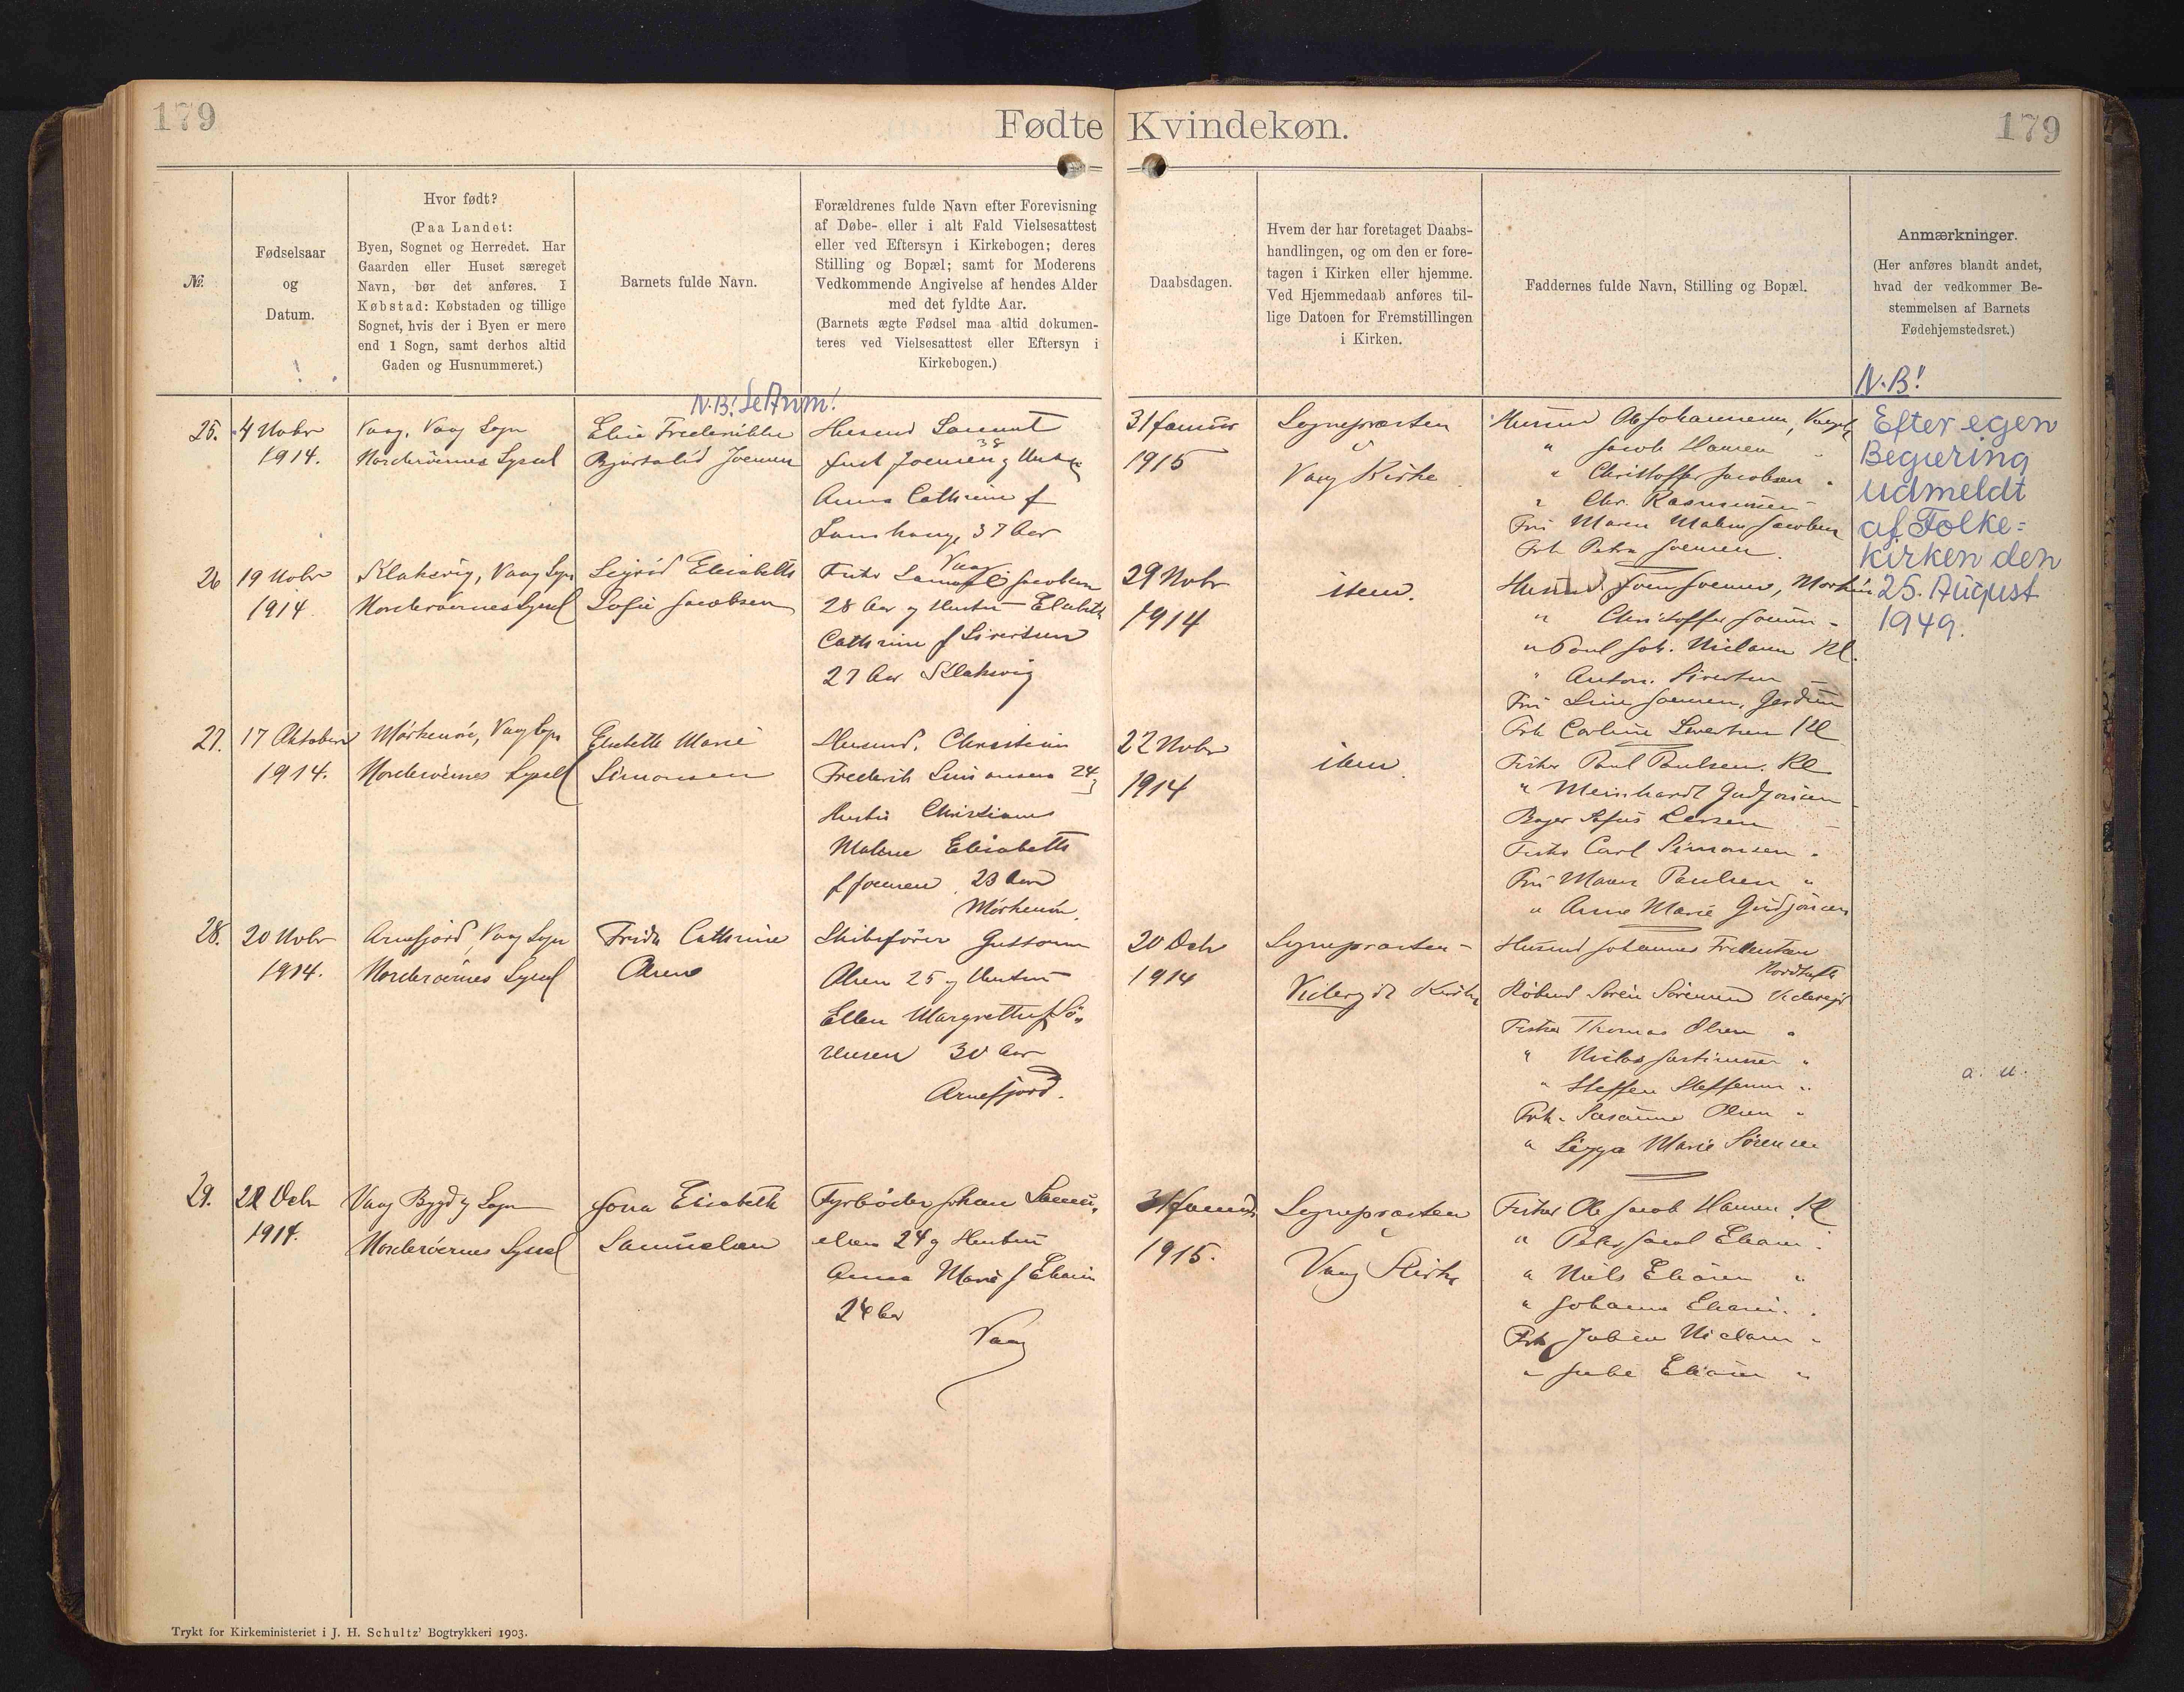 179
Fødte Kvindekøn.
179
№.
Fødselsaar
og
Datum.
Hvor født?
(Paa Landet:
Byen, Sognet og Herredet. Har
Gaarden eller Huset særeget
Navn, bør det anføres. I
Købstad: Købstaden og tillige
Sognet, hvis der i Byen er mere
end 1 Sogn, samt derhos altid
Gaden og Husnummeret.)
Barnets fulde Navn.
Forældrenes fulde Navn efter Forevisning
af Døbe- eller i alt Fald Vielsesattest
eller ved Eftersyn i Kirkebogen; deres
Stilling og Bopæl; samt for Moderens
Vedkommende Angivelse af hendes Alder
med det fyldte Aar.
(Barnets ægte Fødsel maa altid dokumen-
teres ved Vielsesattest eller Eftersyn i
Kirkebogen.)
Daabsdagen.
Hvem der har foretaget Daabs-
handlingen, og om den er fore-
tagen i Kirken eller hjemme.
Ved Hjemmedaab anføres til-
lige Datoen for Fremstillingen
i Kirken.
Faddernes fulde Navn, Stilling og Bopæl.
Anmærkninger.
(Her anføres blandt andet,
hvad der vedkommer Be-
stemmelsen af Barnets
Fødehjemstedsret.)
N.B! Se Anm!
25.
4 Nobr
1914.
Vaag, Vaag Sogn
Norderøernes Syssel
Elsie Frederikke
Joensen
38
Anna Cathrine f
37 Aar
Vaag
31 Januar
1915
Sognepræsten
Vaag Kirke
Ole Johannesen,
" Jacob Hansen
" Christoffer Jacobsen "
" Chr. Rasmussen
Fru Maren Malene Jacobsen
Frk Petra Joensen.
N.B!
Efter egen
Begæring
udmeldt
af Folke=
kirken den
25. August
1949.
26
19 Nobr
1914
Klaksvig, Vaag Sogn
Norderøernes Syssel
Sigrid Elisabeth
Sofie Jacobsen
Jacobsen
28 Aar og Hustru Elisabeth
Cathrine f Sivertsen
27 Aar Klaksvig
29 Nobr
1914
item.
Joen Joensen,
" Christoffer Joensen
" Poul Joh. Nielsen Kl.
" Anton Sivertsen
Fru Joensen,
Frk Carline Sivertsen Kl
27.
17 Oktober
1914.
Mørkenøre, Vaag Sogn
Norderøernes Syssel
Elisabeth Marie
Simonsen
Husmd. Christian
Frederik Simonsen 24
Hustru Christiane
Malene Elisabeth
f Joensen 23 Aar
Mørkenøre.
22 Nobr
1914
item.
Fisker Poul Poulsen. Kl
" Meinhardt Gudjonsen
Bager Sofus Larsen
Fisker Carl Simonsen "
Fru Maren Paulsen "
" Anne Marie Gudjonsen
28.
20 Nobr
1914.
Arnefjord, Vaag Sogn
Norderøernes Syssel
Frida Cathrine
Olsen
Skibsfører
Olsen 25 og Hustru
Ellen Margrethe f Sø-
rensen 30 Aar
Arnefjord.
20 Decbr
1914
Sognepræsten
Viderejde Kirke
Husmd Johannes
Søren Sørensen Viderejde
Fisker Thomas Olsen "
" Niclas Justinussen "
" Steffen Steffensen "
Frk. Susanne Olsen "
" Sigga Marie Sørensen
a. u.
29.
22 Decbr
1914.
Vaag Bygd og Sogn
Norderøernes Syssel
Jona Elisabeth
Samuelsen
Fyrbøder Johan Samu-
elsen 24 og Hustru
Anna Marie f Eliasen
24 Aar
Vaag
31 Januar
1915.
Sognepræsten
Vaag Kirke
Fisker Ole Jacob Hansen Kl
" Peter Jacob Eliasen "
" Niels Eliasen "
" Johannes Eliasen "
Frk Nielsen "
" Eliasen "
Trykt for Kirkeministeriet i J. H. Schultz' Bogtrykkeri 1903.